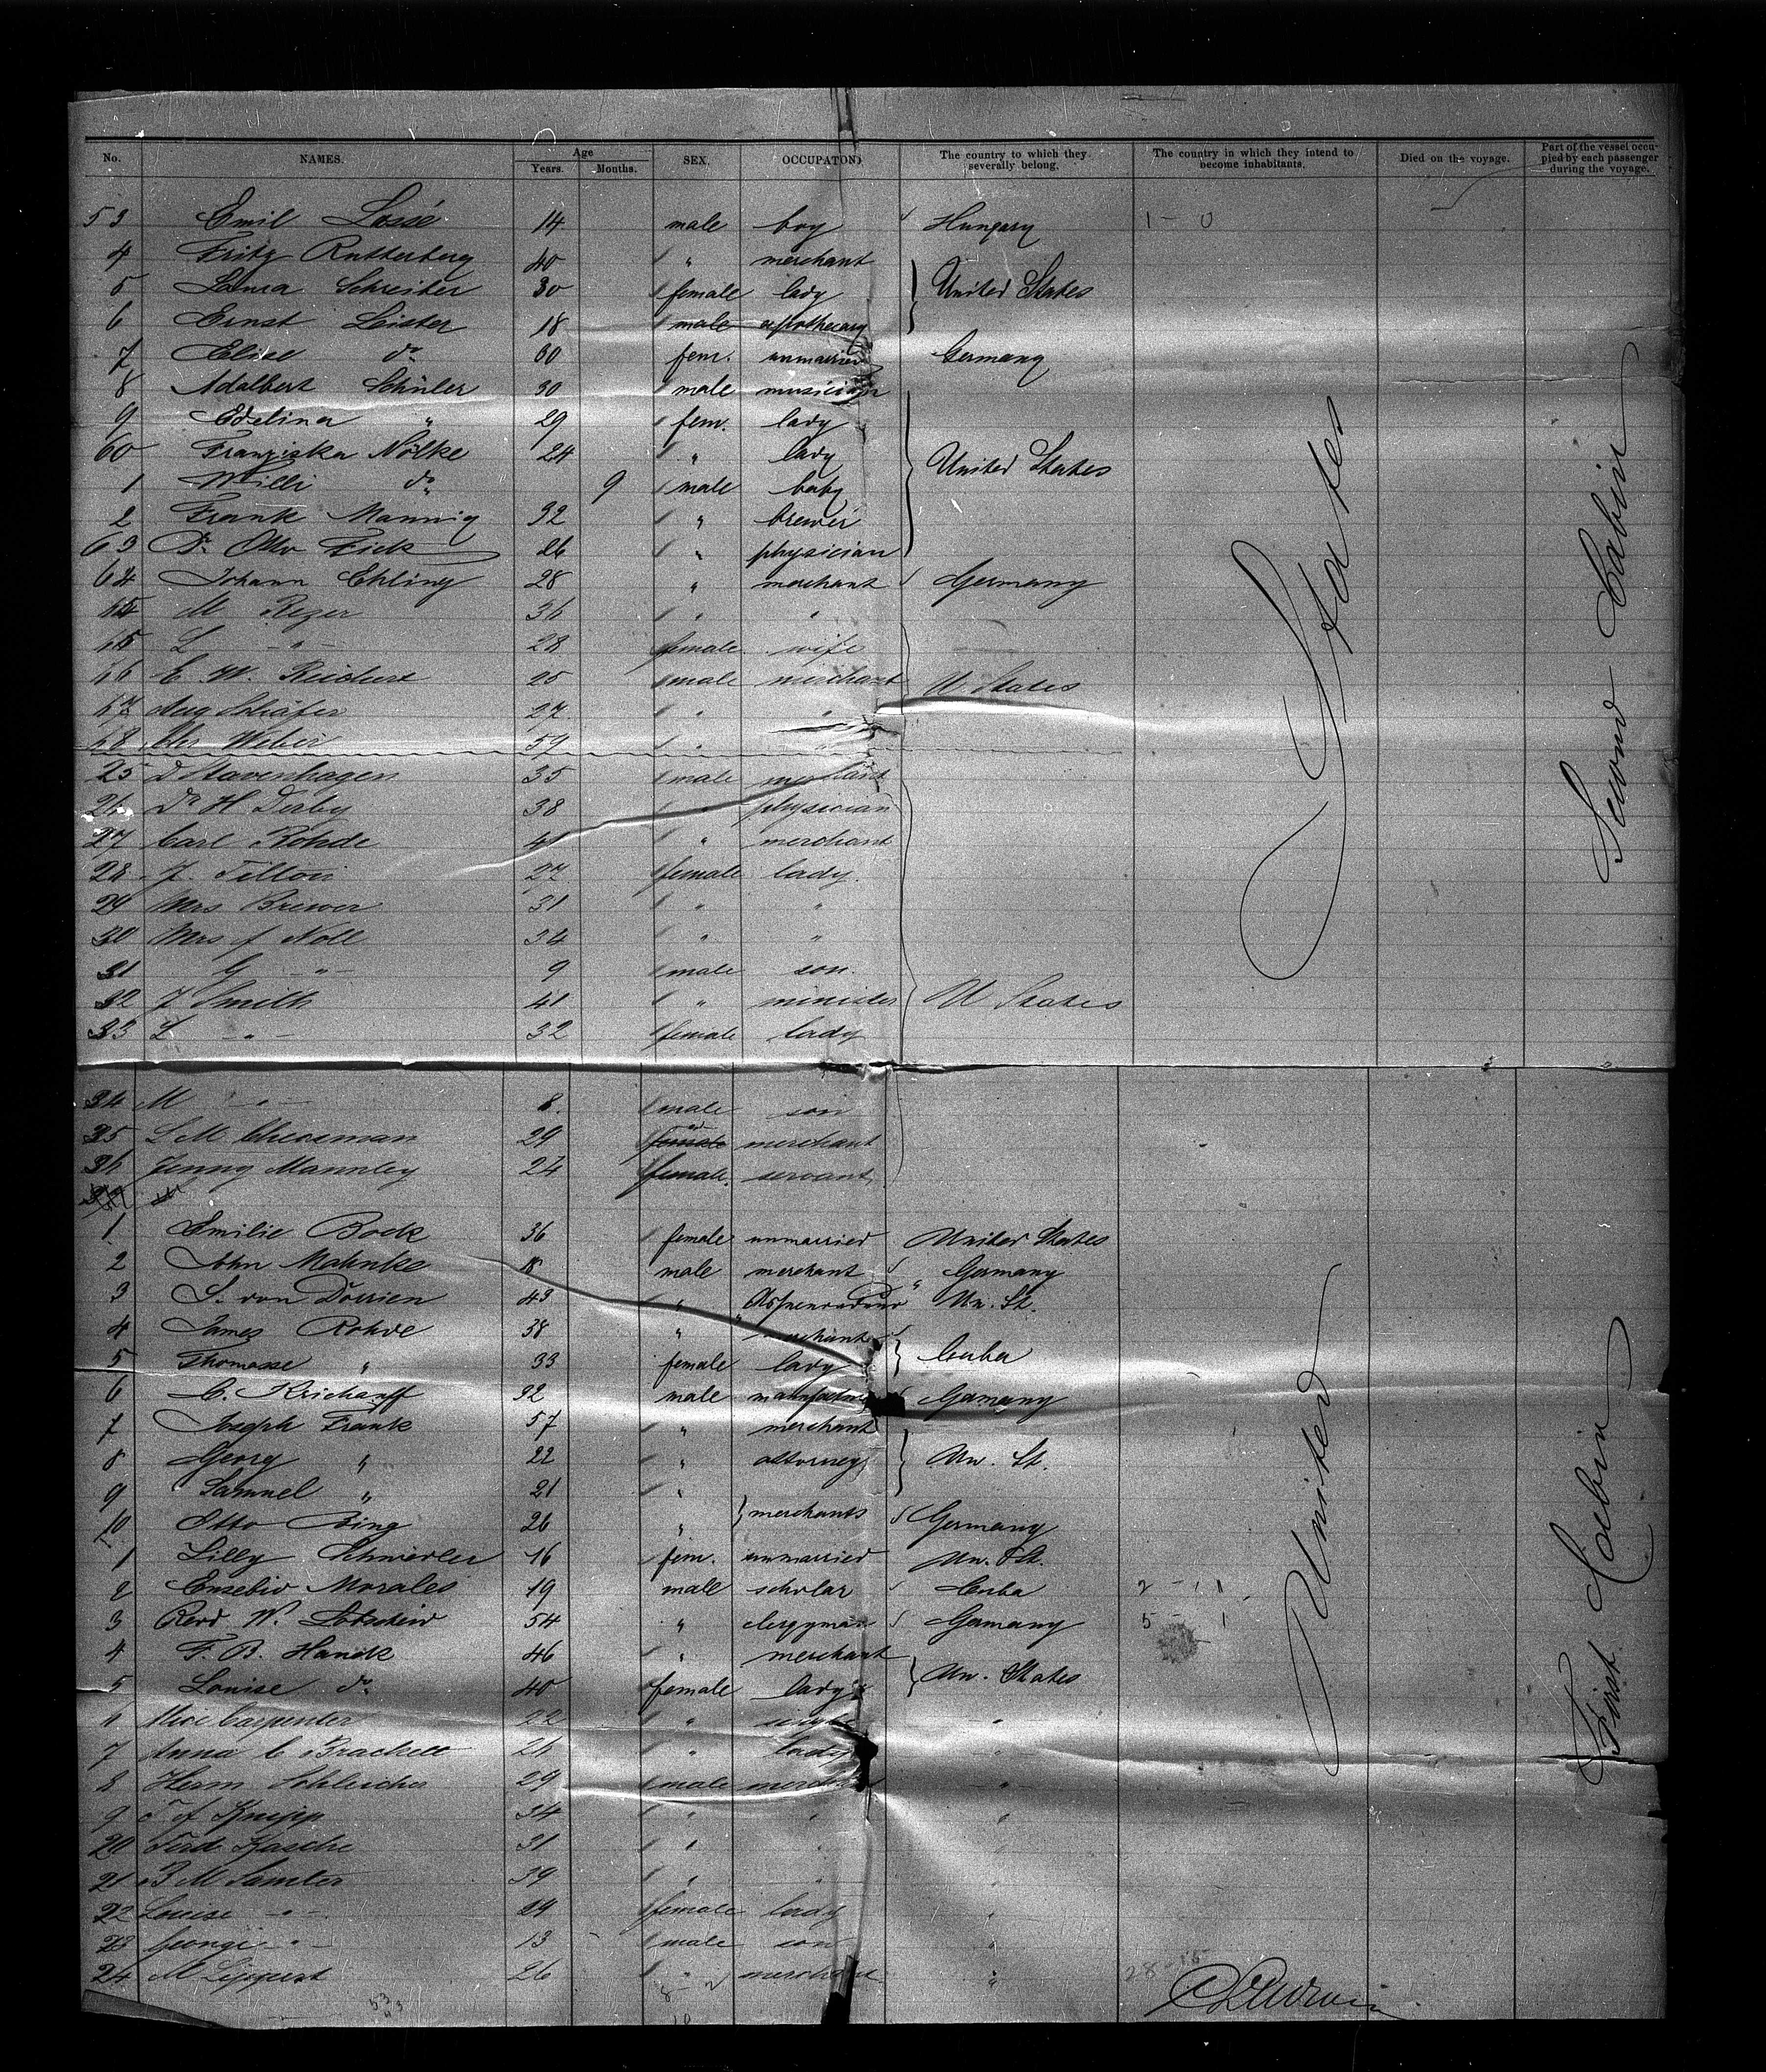 No. NAMES. Age Years. Months. SEX. OCCUPATON) The country to which they severally belong. The country in which they intend to become inhabitants. Died on the voyage. Part of the vessel occupied by each passenger during the voyage.
53 Emil Lossé 14 male boy Hungary 1 - 0
4 Fritz Rutterberg 40 " merchant
5 Laura Schreiber 30 female lady United States
6 Ernst Leister 18 male apothecary
7 Elise do 30 fem. unmarried Germany
8 Adalbert Schüler 30 male musician
9 Edelina " 29 fem. lady
60 Franziska Nölke 24 " lady United States
1 Willi do 9 male baby
2 Frank Mannig 32 " brewer
63 Dr. Otto Fick 26 " physician
64 Johann Ehling 28 " merchant Germany
M Reger 36 " "
L - " - 28 female wife
66 E. W. Reichert 25 male merchant U States
67 Aug Schäfer 27 " "
68 Weber 59 "
25 D Stavenhagen 35 male merchant
26 Dr H Derby 38 " physician
27 Carl Rohde " merchant
28 F. 27 female lady.
29 Mrs Brewer 31 " "
30 Mrs J Noll 34 " "
31 G - " - 9 male son
32 J Smith 41 " minister U States
33 L - " - 32 female lady
34 M - " - 8. male son
35 S M Cheesman 29 female merchant
36 Jenny Mannley 24 female. servant
1 Emilie Bock 36 female unmarried United States
2 John Mahnke male merchant Germany
3 S. von Dörrien 43 " Un. St.
4 James Rohde 38 " merchant
5 Thomasse " 33 female lady Cuba
6 C. 32 male Germany
7 Joseph Frank 57 " merchant
8 Georg " 22 " attorney Un. St.
9 Samuel " 21 "
10 Otto Bing 26 " merchants Germany
1 Lilly Schwedler 16 fem. unmarried Un. St.
2 Eusebio Morales 19 male scholar Cuba 2 - 11
3 Revd W. Lobscheid 54 " clergyman Germany 5 - 1
4 F. B. Hauck 46 " merchant
5 Louise do 40 female lady Un. States
Alice Carpenter 22 " "
7 Anna C Brackett " lady
8 Herm Schleicher 29 male merchant "
9 Knipp 34 " " "
20 Ferd. Kasche 31 "
21 B M Samler 39 " "
22 Louise - " - 29 female lady "
23 George - " - 13 male son "
24 M Lippert 26 " merchant "
United States
Second Cabin
First Cabin
28 - 15